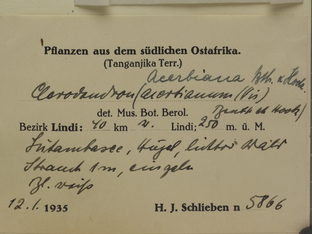 Pflanzen aus dem südlichen Ostafrika.
(Tanganjika Terr.)
Acerbiana
Clerodendron (acerbianum (Vis)
Benth et Hook)
det. Mus. Bot. Berol.
Bezirk Lindi: 40 km w. Lindi; 250 m. ü. M.
Hügel, lichter Wald
Strauch 1 m, einzeln
Bl. weiß
12.1.1935 H. J. Schlieben n 5866